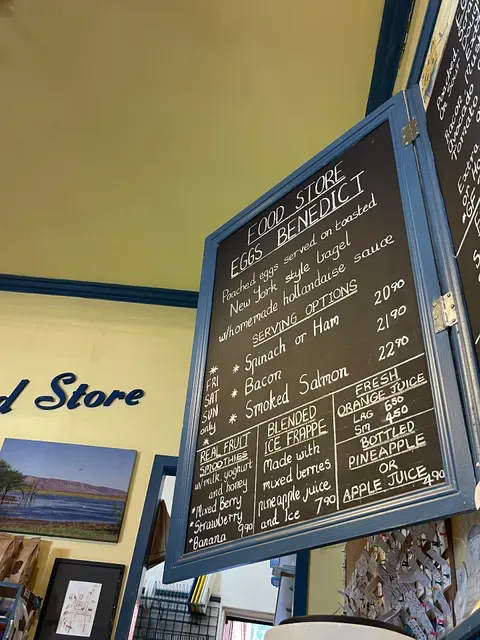 FOOD STORE
EGGS BENEDICT
Poached eggs served on toasted
New York style bagel
w/homemade hollandaise sauce
SERVING OPTIONS
* Spinach or Ham 2090
* Bacon 2190
* Smoked Salmon 2290
*
FRI
SAT
SUN
only
*
REAL FRUIT
SMOOTHIES
w/milk, yoghurt
and honey
*Mixed Berry
*Strawberry
*Banana 990
BLENDED
ICE FRAPPE
Made with
mixed berries
pineapple juice
and Ice 790
FRESH
ORANGE JUICE
LRG 650
Sm 450
BOTTLED
PINEAPPLE
OR
APPLE JUICE 490
Poached
Bacon
Avocado
Tomato
Extra
or
d Store